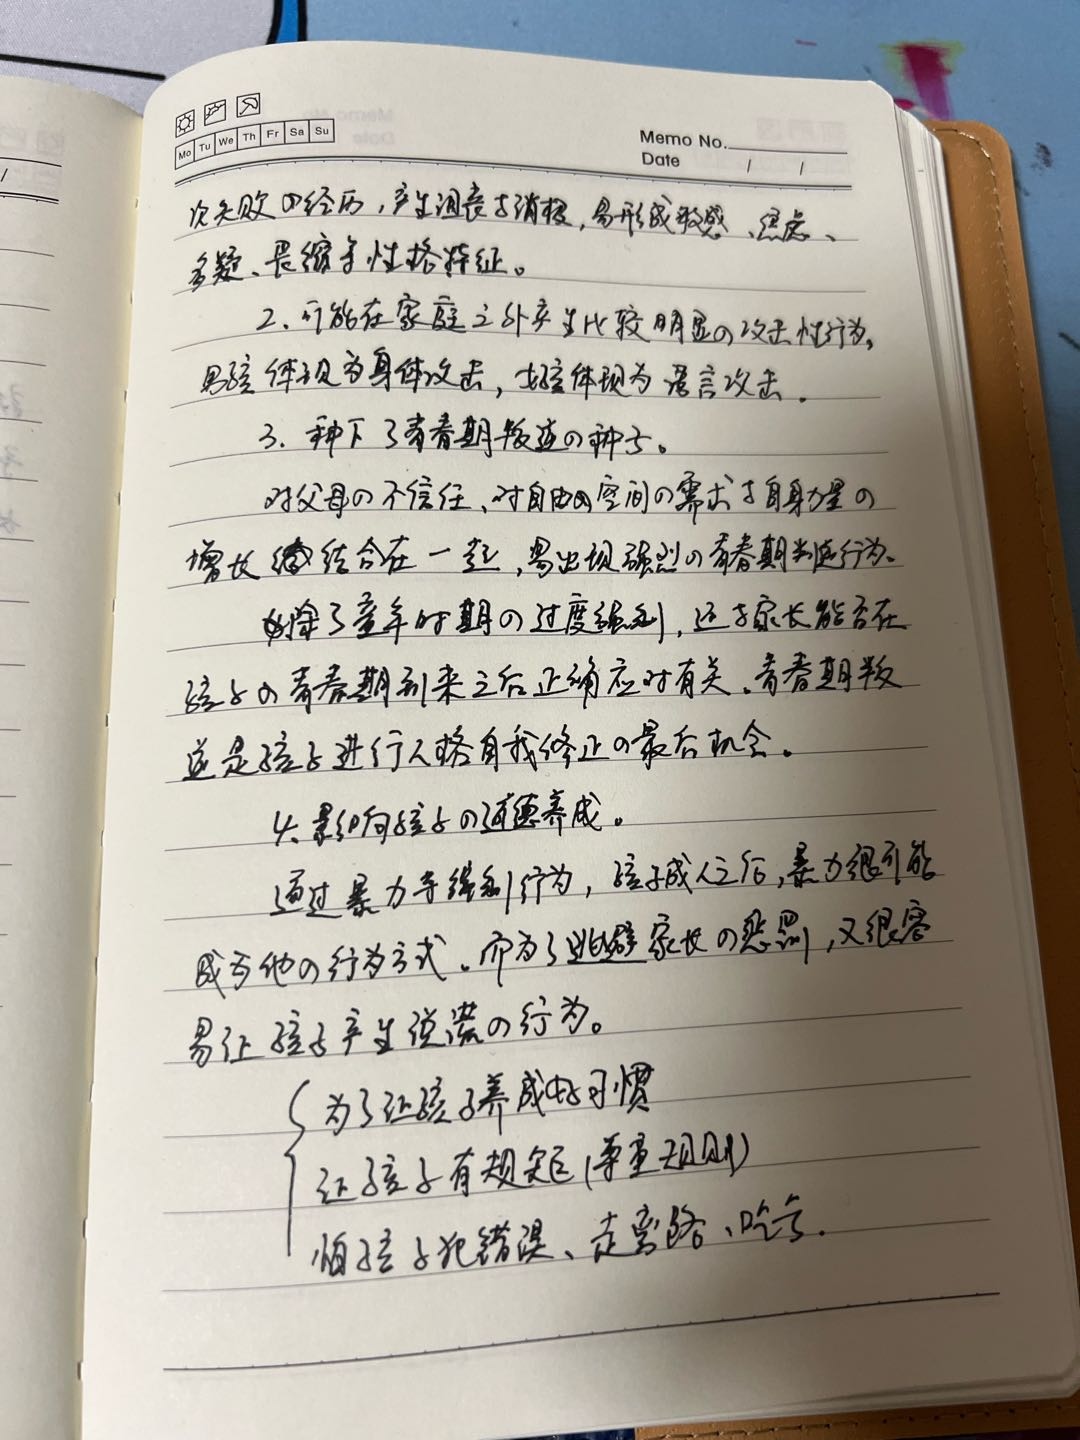 Mo Tu We Th Fr Sa Su
Memo No.
Date / /
次失败の经历，产生沮丧与消极，易形成敏感、焦虑、
多疑、畏缩等性格特征。
2、可能在家庭之外产生比较明显の攻击性行为，
男孩体现为身体攻击，女孩体现为语言攻击．
3、种下了青春期叛逆の种子。
对父母の不信任、对自由の空间の需求与自身力量の
增长 结合在一起，易出现强烈の青春期叛逆行为。
除了童年时期の过度强制，还与家长能否在
孩子の青春期到来之后正确应对有关．青春期叛
逆是孩子进行人格自我修正の最后机会。
4、影响孩子の道德养成。
通过暴力等强制行为，孩子成人之后，暴力很可能
成为他の行为方式．而为了逃避家长の惩罚，又很容
易让孩子产生说谎の行为。
为了让孩子养成好习惯
让孩子有规矩（尊重规则）
怕孩子犯错误、走弯路、吃亏．